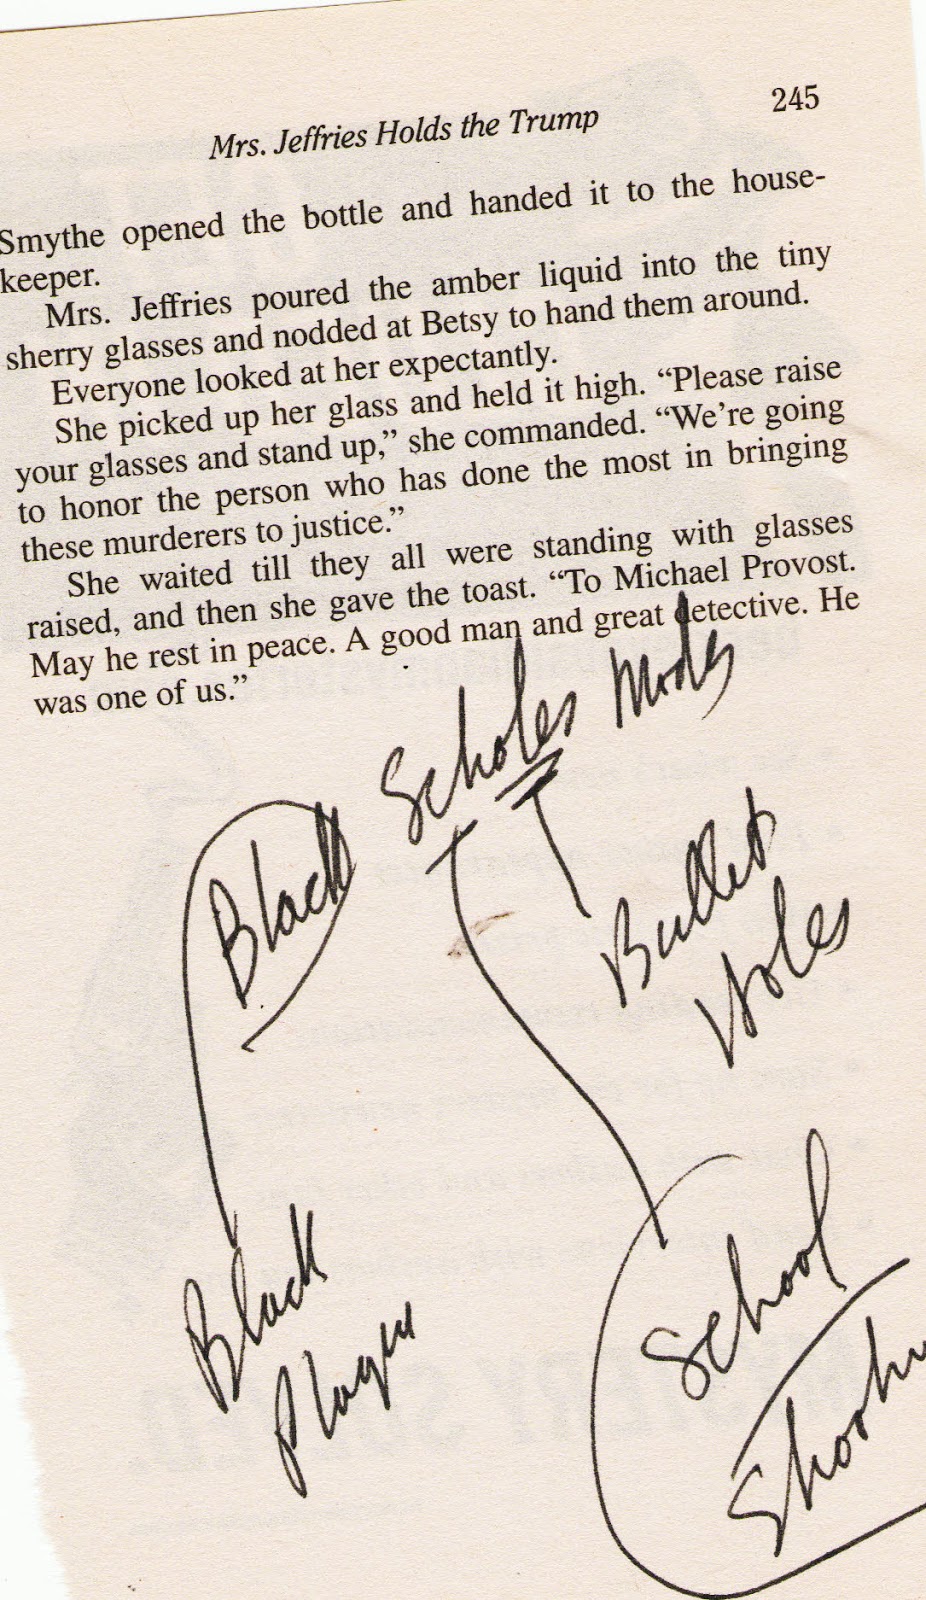 Mrs. Jeffries Holds the Trump 245
Smythe opened the bottle and handed it to the house-
keeper.
Mrs. Jeffries poured the amber liquid into the tiny
sherry glasses and nodded at Betsy to hand them around.
Everyone looked at her expectantly.
She picked up her glass and held it high. “Please raise
your glasses and stand up,” she commanded. “We’re going
to honor the person who has done the most in bringing
these murderers to justice.”
She waited till they all were standing with glasses
raised, and then she gave the toast. “To Michael Provost.
May he rest in peace. A good man and great detective. He
was one of us.”
Black Scholes
Bullet
Holes
Black
Plague
School